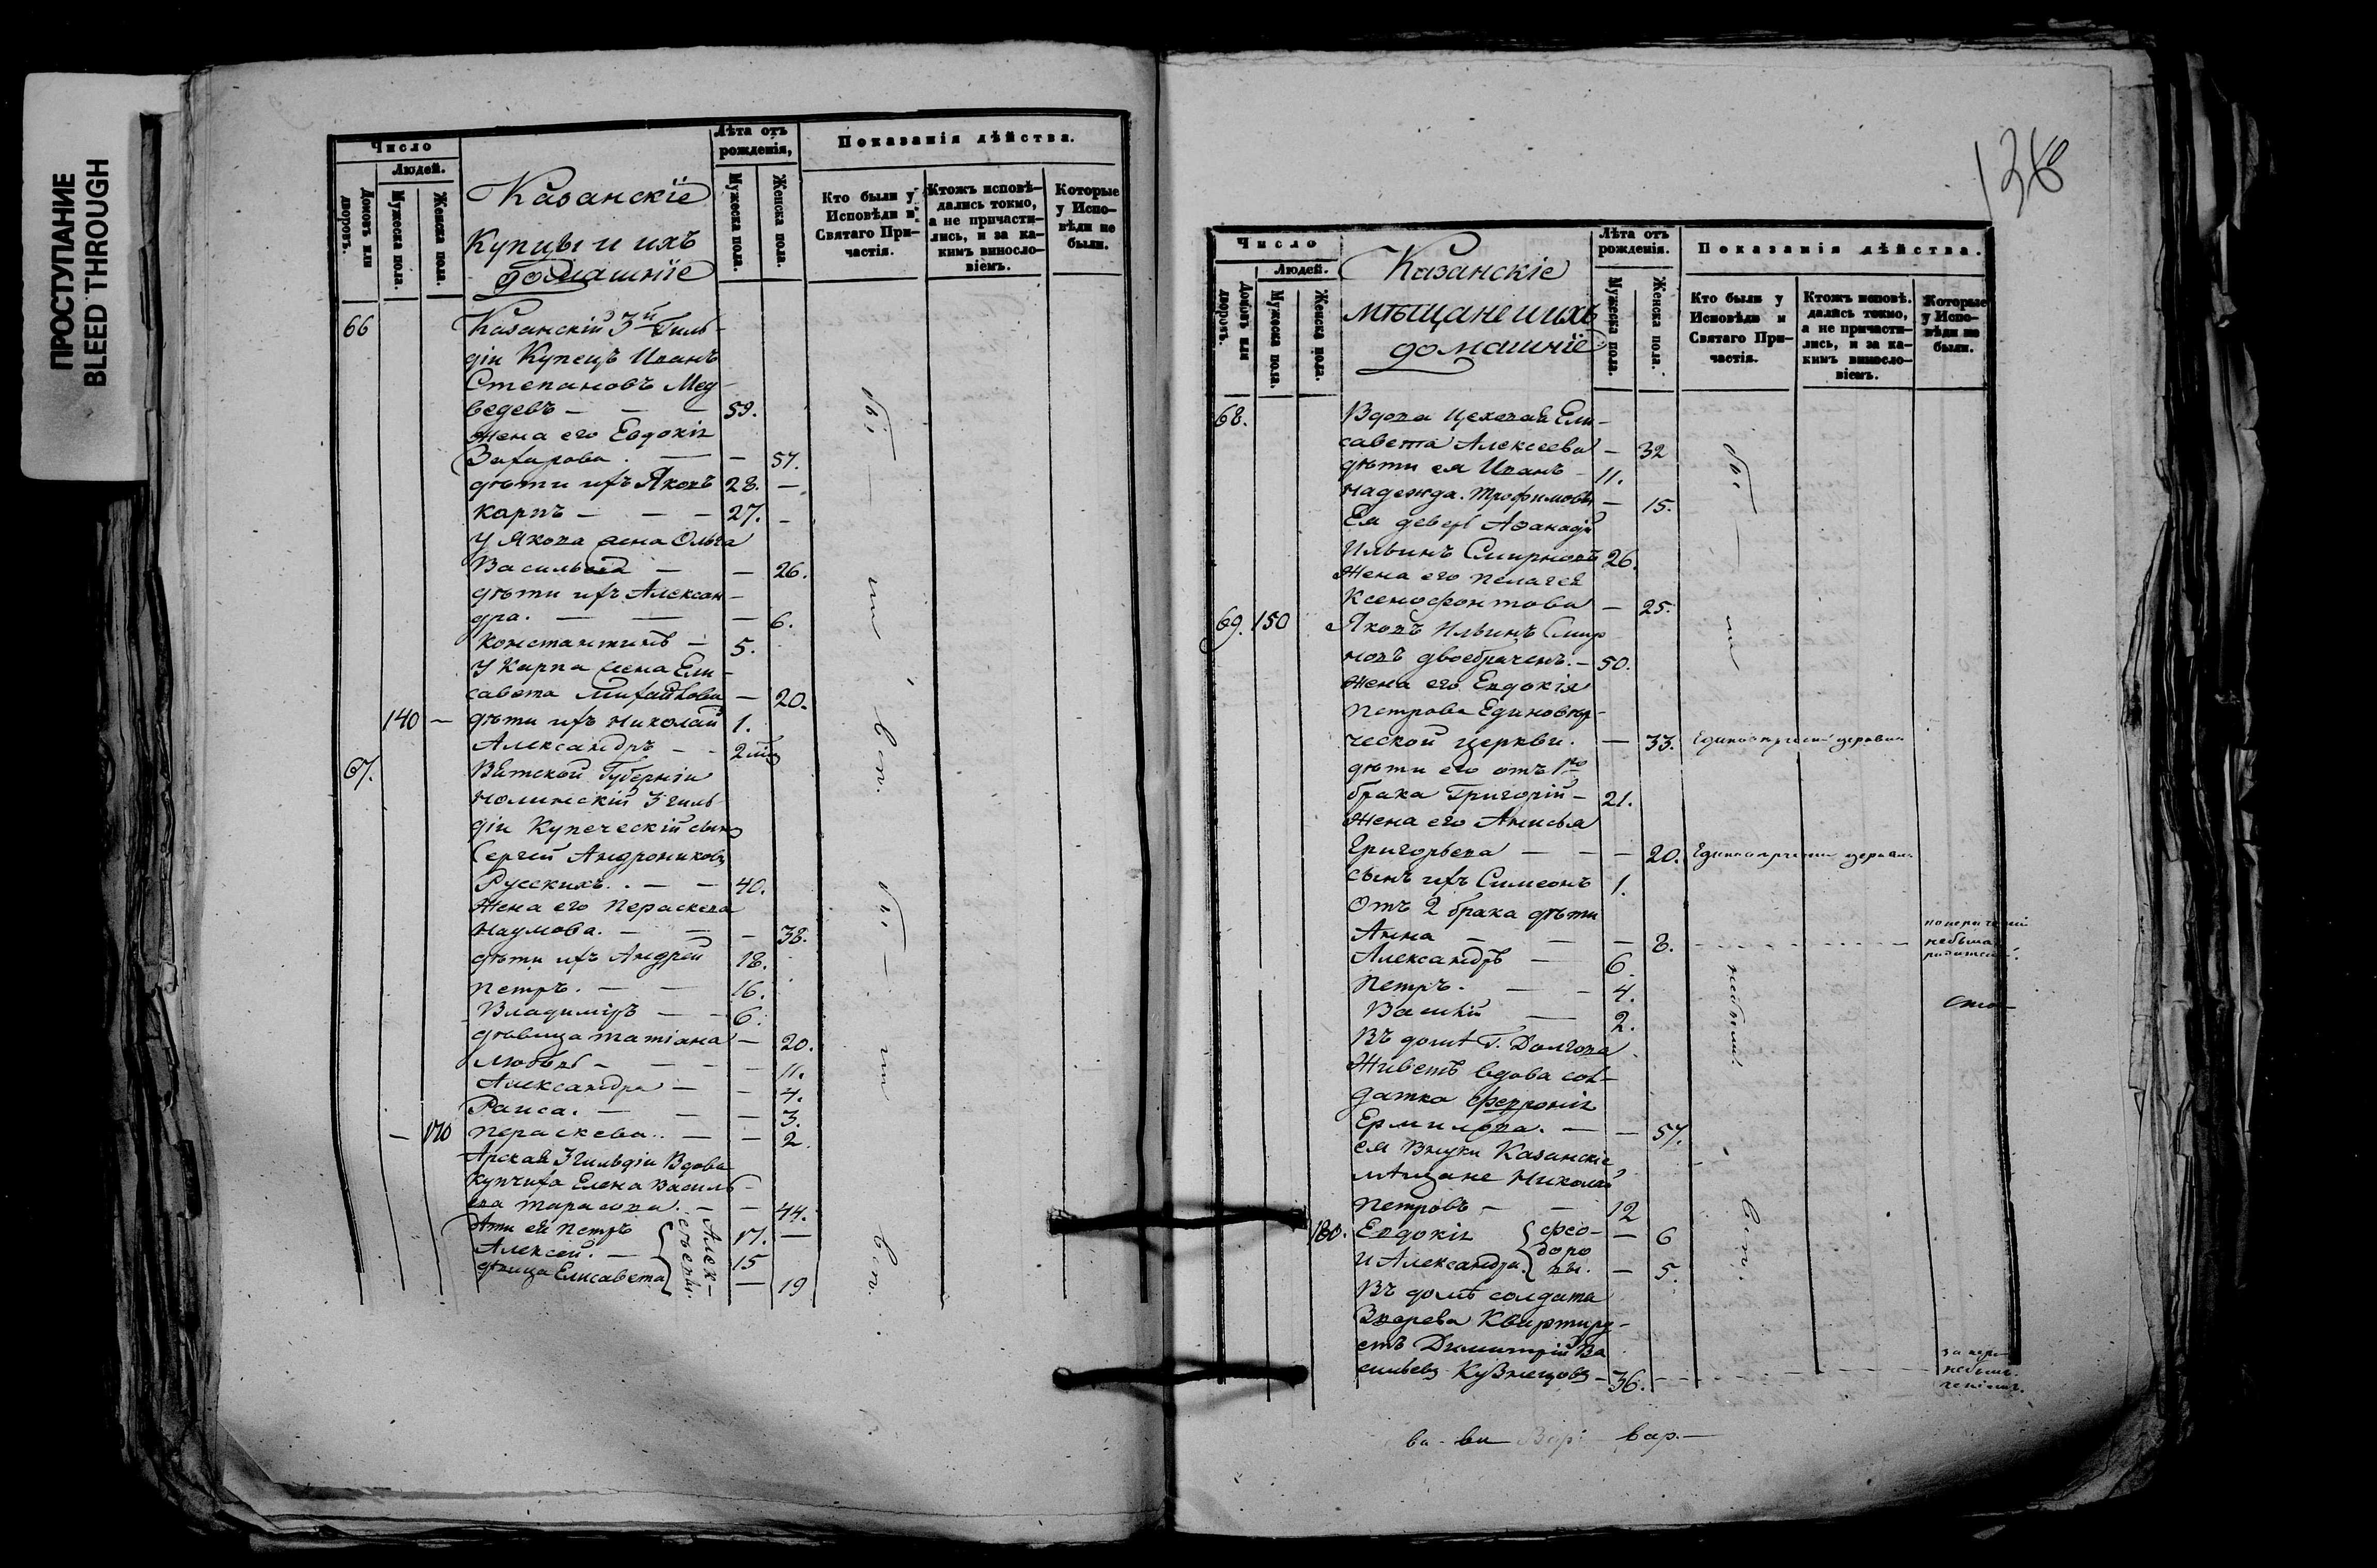 ПРОСТУПАНИЕ
BLEED THROUGH
Число
Людей.
Домовъ или дворовъ.
Мужеска пола.
Женска пола.
Казанскіе
Купцы и ихъ
домашніе
Лѣта отъ рожденія,
Мужеска пола.
Женска пола.
Показанія дѣйства.
Кто были у Исповѣди и Святаго Причастія.
Ктожъ исповѣдались токмо, а не причастились, и за какимъ винословіемъ.
Которые у Исповѣди не были.
66 Казанскій 3й Гиль-
діи Купецъ Иванъ
Степановъ Мед-
ведевъ — 59.
жена его Евдокія
Захарова. — 57.
дѣти ихъ Яковъ 28. —
Карпъ — 27. —
У Якова жена Ольга
Васильева — 26.
дѣти ихъ Алексан-
дра. — 6.
Константинъ — 5.
У Карпа жена Ели-
савета Михайлова — 20.
140 — дѣти ихъ Николай 1.
Александръ — 2
67. Вятской Губерніи
Нолинскій 3 гиль-
діи Купеческій сынъ
Сергей Андрониковъ
Русскихъ. — 40.
Жена его Пераскева
Наумова. — 38.
дѣти ихъ Андрей 18.
Петръ. — 16.
Владиміръ — 6.
дѣвица Татіана — 20.
Любовь — 11.
Александра — 4.
Раиса. — 3.
— 170 Пераскева. — 2.
Арская 3 гильдіи Вдова
Купчиха Елена Василь-
ева Тарасова. — 44.
дѣти ея Петръ 17. —
Алексей. — 15
дѣвица Елисавета — 19
Алек-
сѣевы.
бы — ли, всп.
бы — ли всп.
138
Число
Людей.
Домовъ или дворовъ.
Мужеска пола.
Женска пола.
Казанскіе
мѣщане и ихъ
домашніе
Лѣта отъ рожденія.
Мужеска пола.
Женска пола.
Показанія дѣйства.
Кто были у Исповѣди и Святаго Причастія.
Ктожъ исповѣдались токмо, а не причастились, и за какимъ винословіемъ.
Которые у Исповѣди не были.
68. Вдова цеховая Ели-
савета Алексеева — 32
дѣти ея Иванъ — 11.
Надежда. Трофимовы — 15.
Ея деверь Афанасій
Ильинъ Смирновъ 26.
Жена его Пелагея
Ксенофонтова — 25.
69. 150 Яковъ Ильинъ Смир
новъ двоебраченъ. — 50.
жена его Евдокія
Петрова Единовѣр-
ческой церкви. — 33. Единовѣрческой церкви
дѣти его отъ 1го
брака Григорій — 21.
Жена его Анисья
Григорьева — 20. Единовѣрческой церкви
сынъ ихъ Симеонъ 1.
Отъ 2 брака дѣти
Анна — 8.
Александръ — 6.
Петръ. — 4.
Василій — 2.
Въ домѣ Г. Долгова
Живетъ вдова сол-
датка Феврónія
Ермилова. — 57.
ея Внуки Казанскіе
мѣщане Николай
Петровъ — 12
180. Евдокія — 6
и Александра — 5.
Фео-
доро
вы.
Въ домѣ солдата
Зверева Квартиру-
етъ Димитрій Ва
сильевъ Кузнецовъ — 36.
бы — ли
небыли
всп.
ва - ва вар. —